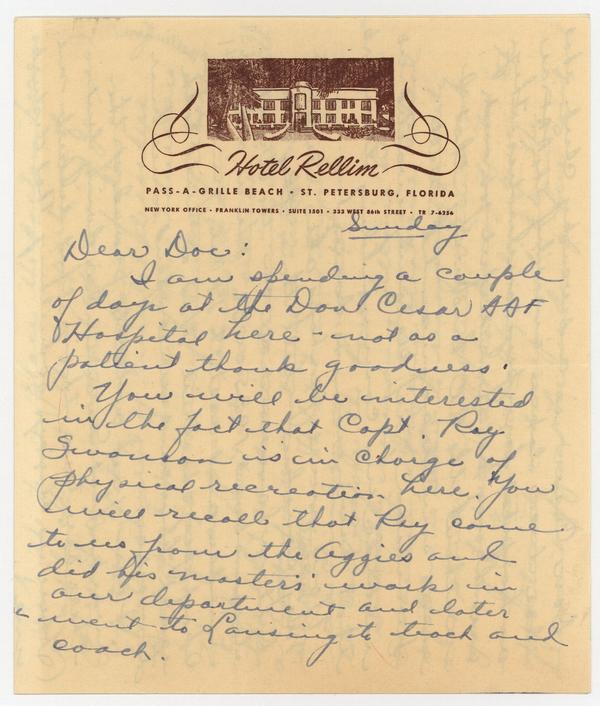 Hotel Rellim
PASS-A-GRILLE BEACH • ST. PETERSBURG, FLORIDA
NEW YORK OFFICE • FRANKLIN TOWERS • SUITE 1501 • 333 WEST 86th STREET • TR 7-6256
Sunday
Dear Doc:
I am spending a couple
of days at the Don Cesar AAF
Hospital here - not as a
patient thank goodness.
You will be interested
in the fact that Capt. Ray
Swanson is in charge of
physical recreation here. You
will recall that Ray came
to us from the Aggies and
did his masters' work in
our department and later
went to Lansing to teach and
coach.